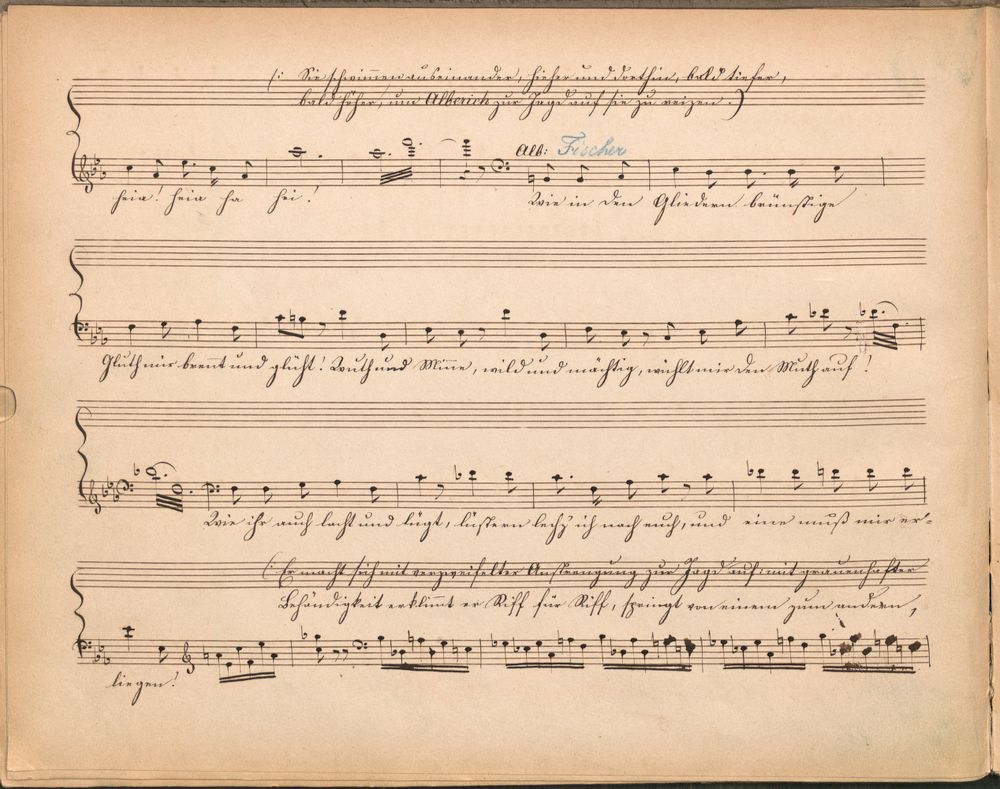 (: Sie schwimmen auseinander, hieher und dorthin, bald tiefer,
bald höher, um Alberich zur Jagd auf sie zu reizen. )
Alb: Fischer
heia! heia ha hei! Wie in den Gliedern brünstige
Gluth mir brennt und glüht! Wuth und Minne, wild und mächtig, wühlt mir den Muth auf!
Wie ihr auch lacht und lügt, lüstern lechz' ich nach euch, und eine muß mir er=
(: Er macht sich mit verzweifelter Anstrengung zur Jagd auf: mit grauenhafter
Behändigkeit erklimmt er Riff für Riff, springt von einem zum andern,
liegen!